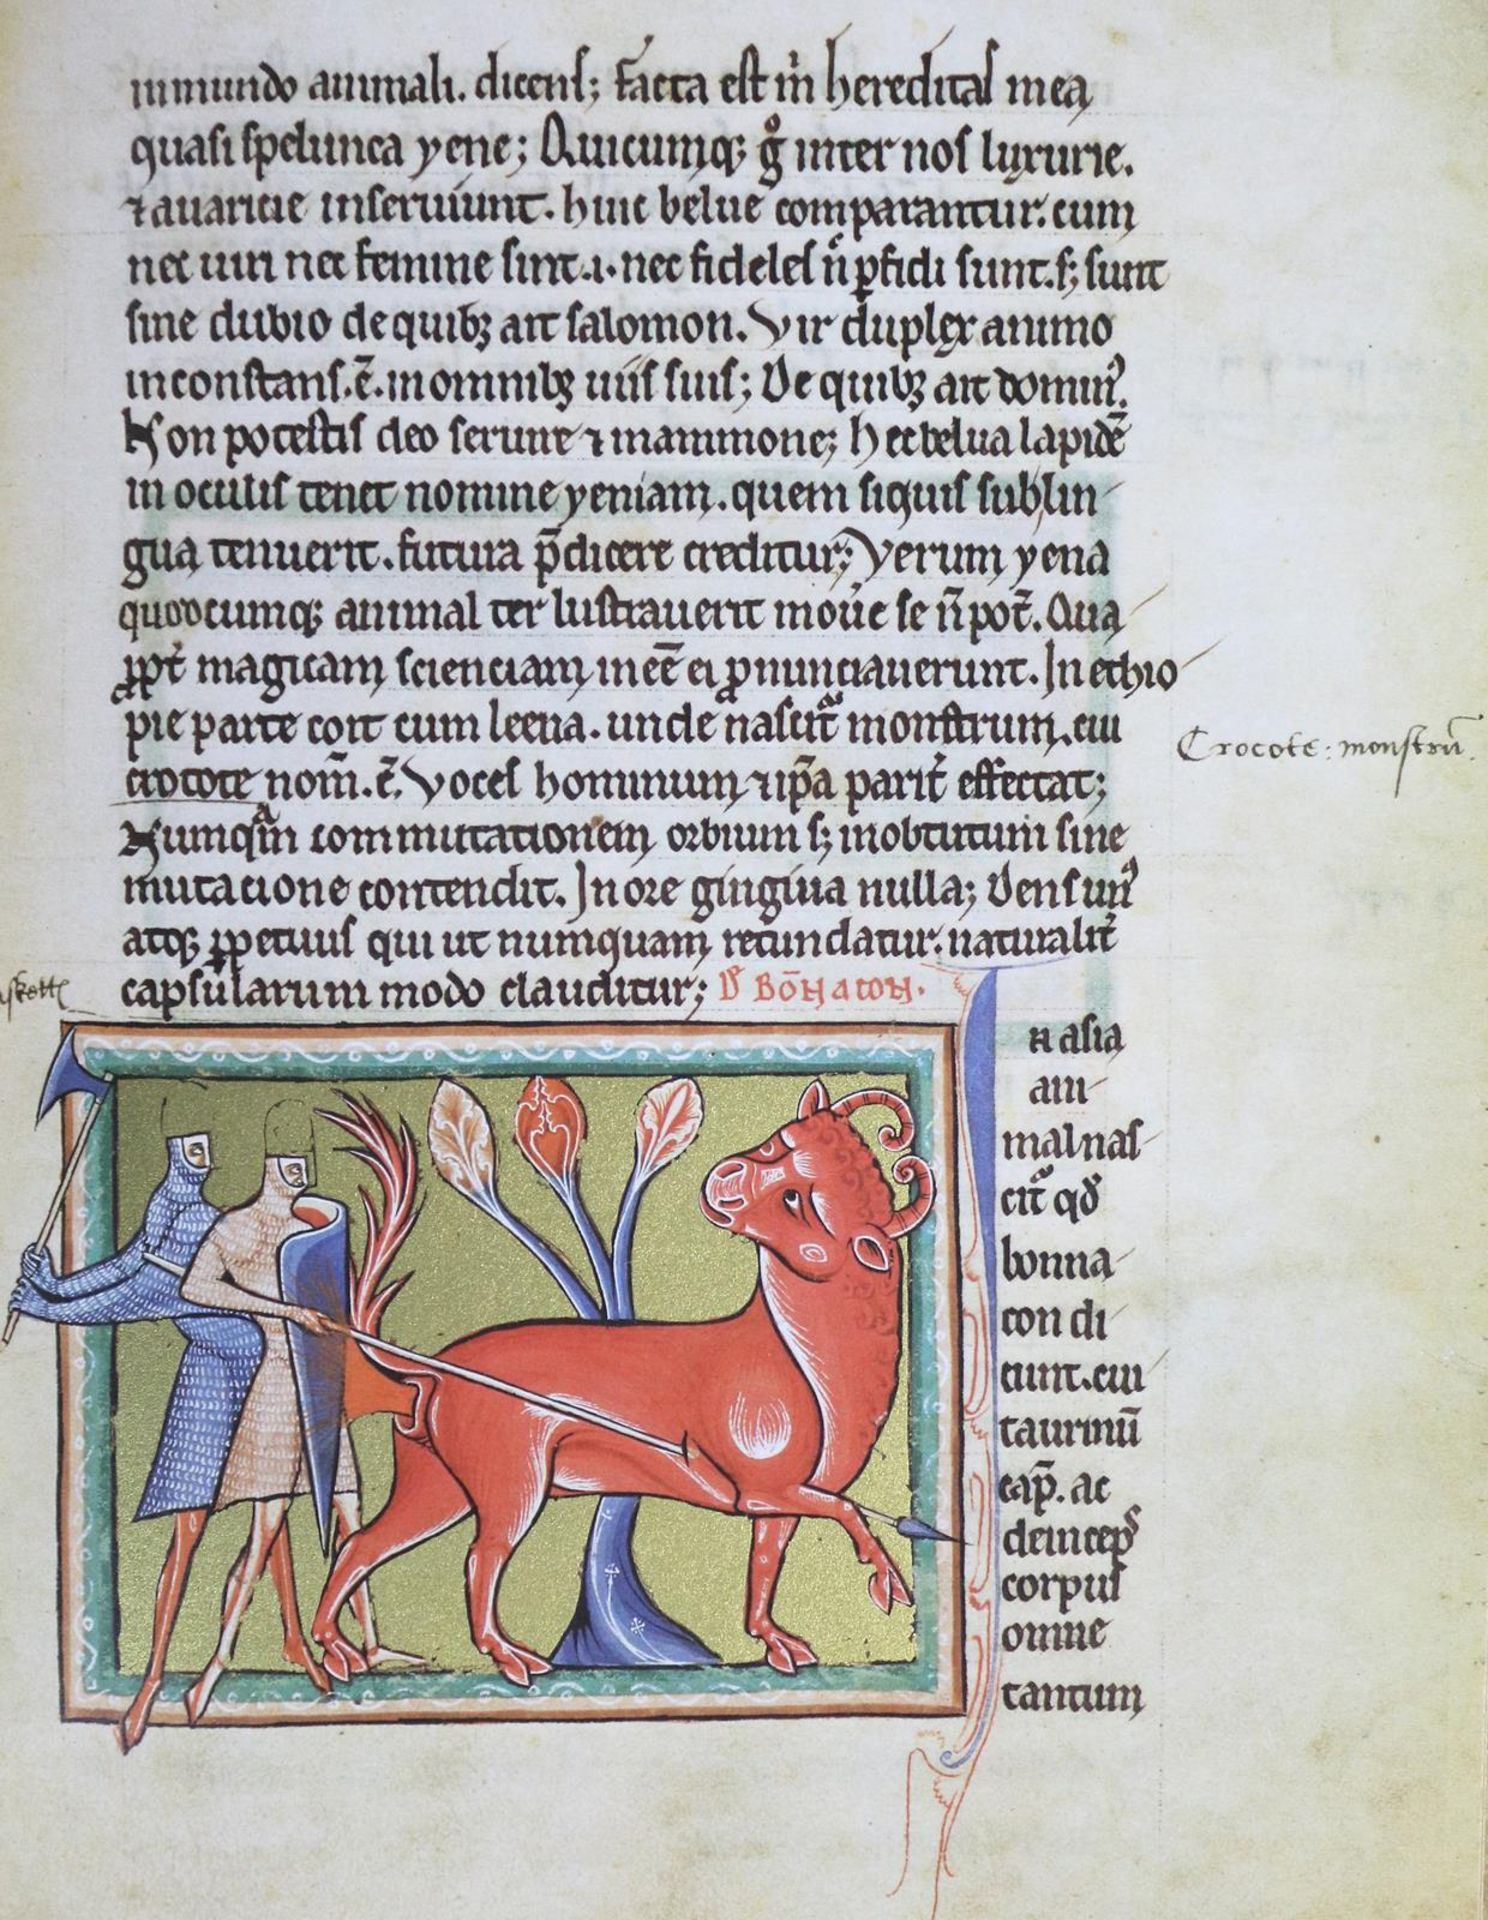 inmundo animali. dicens; facta est ṁ hereditas mea
quasi spelunca yene; Quicumq; g̊ inter nos luxurie.
⁊ auaricie inseruiunt. huic belue comparantur. cum
nec uiri nec femine sint .i. nec fideles n̄ ꝑfidi sunt. s; sunt
sine dubio de quibꝫ ait salomon. Vir duplex animo
inconstans .ē. in omnibꝫ uiis suis; De quibꝫ ait dominꝰ.
Non potestis deo seruire ⁊ mammone; hec belua lapidē
in oculis tenet nomine yeniam. quem siquis sub lin
gua tenuerit. futura p̄dicere creditur; Verum yena
quodcumq; animal ter lustrauerit mou̇e se n̄ pot̄. Qua
ꝓpt̄ magicam scienciam in eē ei ꝓnunciauerunt. In ethio
pie parte coit cum leena. unde nascit᷑ monstrum. cui
crocote nom̄ .ē. Voces hominum ⁊ ip̄a parit̄ effectat;
Numqᵃm commutationem orbium s; in obtutum sine
mutacione contendit. In ore gingiua nulla; Dens unꝰ
atq; ꝑpetuus qui ut numquam retundatur. naturalit̄
capsularum modo clauditur; D̾ BŌNACON.
Crocote: monstrū.
N asia
ani
mal nas
cit᷑ qđ
bonna
con di
cunt. cui
taurinū
cap̄. ac
deincepˢ
corpus
omne
tantum